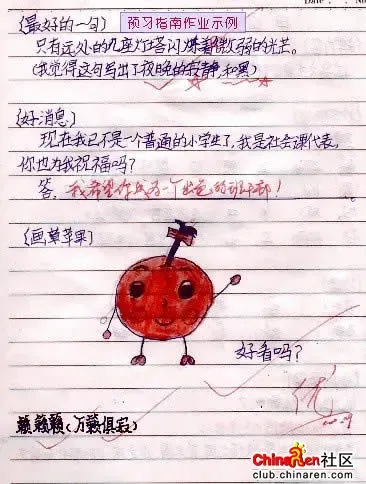 预习指南作业示例
(最好的一句)
只有远处的几座灯塔闪烁着微弱的光芒。
(我觉得这句写出了夜晚的寂静,和黑)
(好消息)
现在我已不是一个普通的小学生了,我是社会课代表,
你也为我祝福吗?
答,我希望你成为一个出色的班干部!
(画草苹果)
好看吗?
优
籁籁籁(万籁俱寂)
ChinaRen社区
club.chinaren.com